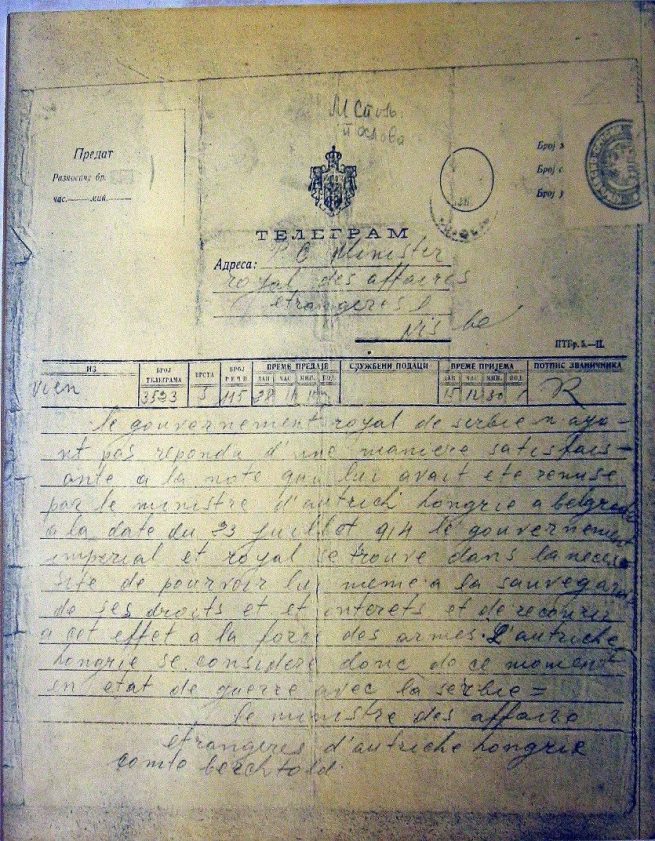 М Сток.
Предат
Разносачу бр.
час. мин.
Број
Број
Број
ТЕЛЕГРАМ
Адреса: Minister
royal des affaires
etrangeres
Nis
ПТБр. 5.—II.
ИЗ БРОЈ ТЕЛЕГРАМА ВРСТА БРОЈ РЕЧИ ВРЕМЕ ПРЕДАЈЕ ДАН ЧАС МИН. ПОД. СЛУЖБЕНИ ПОДАЦИ ВРЕМЕ ПРИЈЕМА ДАН ЧАС МИН. ПОД. ПОТПИС ЗВАНИЧНИКА
Vien 3523 5 115 28 11 15 12 30 R
le gouvernement royal de serbie n ayo-
nt pas reponda d'une maniere satisfais-
ante a la note qui lui avait ete remise
par le ministre d'autrich hongrie a belgrade
a la date du 23 juillet 914 le gouvernement
imperial et royal se trouve dans la neces
site de pourvoir lui meme a la sauvegarde
de ses droits et et interets et de recourir
a cet effet a la force des armes. L'autriche
hongrie se considere donc de ce moment
en etat de guerre avec la serbie =
le ministre des affaire
etrangeres d'autriche hongrie
comte berchtold.